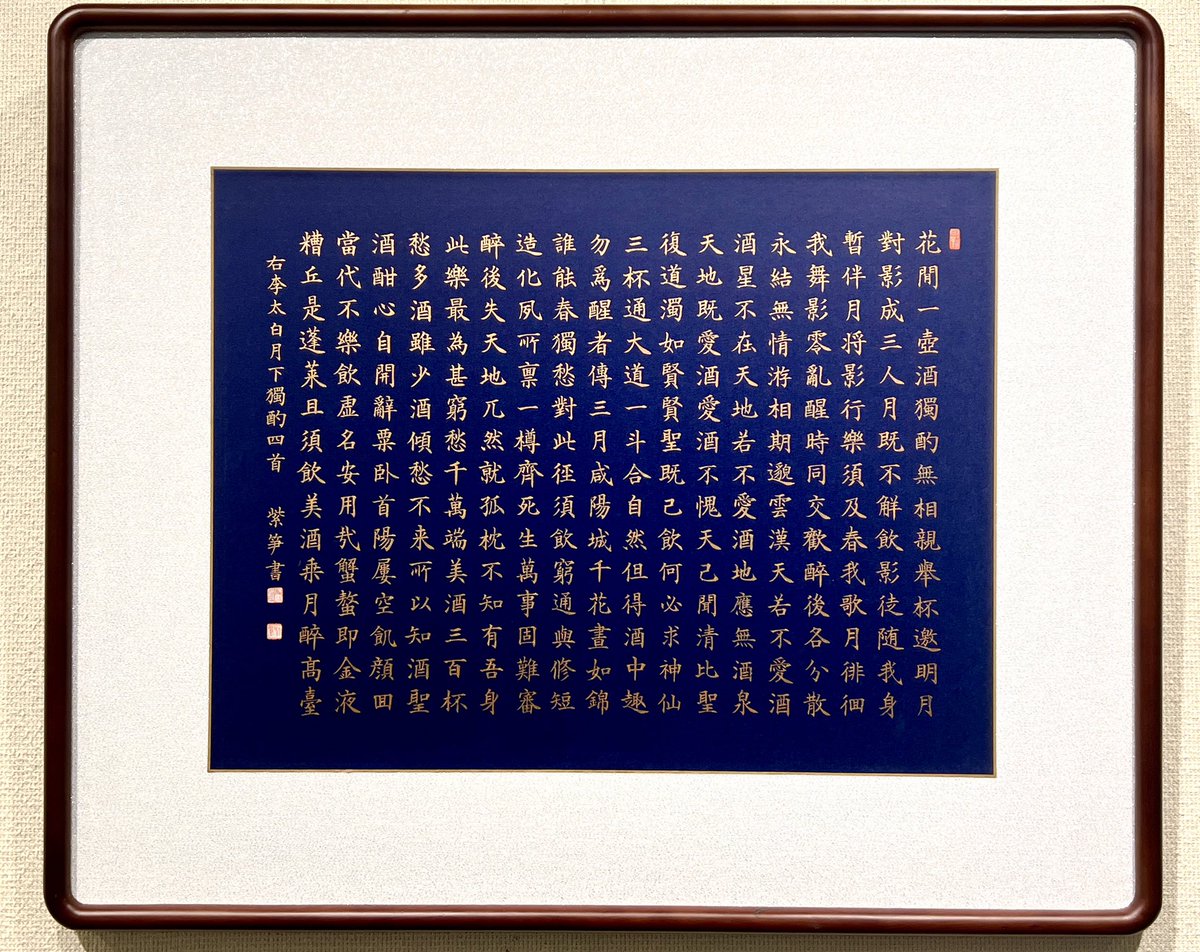 花閒一壺酒獨酌無相親舉杯邀明月
對影成三人月既不解飲影徒随我身
暫伴月将影行樂須及春我歌月徘徊
我舞影零亂醒時同交歡醉後各分散
永結無情游相期邈雲漢天若不愛酒
酒星不在天地若不愛酒地應無酒泉
天地既愛酒愛酒不愧天已聞清比聖
復道濁如賢賢聖既已飲何必求神仙
三杯通大道一斗合自然但得酒中趣
勿爲醒者傳三月咸陽城千花晝如錦
誰能春獨愁對此徑須飲窮通與修短
造化夙所禀一樽齊死生萬事固難審
醉後失天地兀然就孤枕不知有吾身
此樂最為甚窮愁千萬端美酒三百杯
愁多酒雖少酒傾愁不来所以知酒聖
酒酣心自開辭粟卧首陽屢空飢顔回
當代不樂飲虚名安用㦲蟹螯即金液
糟丘是蓬莱且須飲美酒乗月醉髙臺
右李太白月下獨酌四首 紫筝書